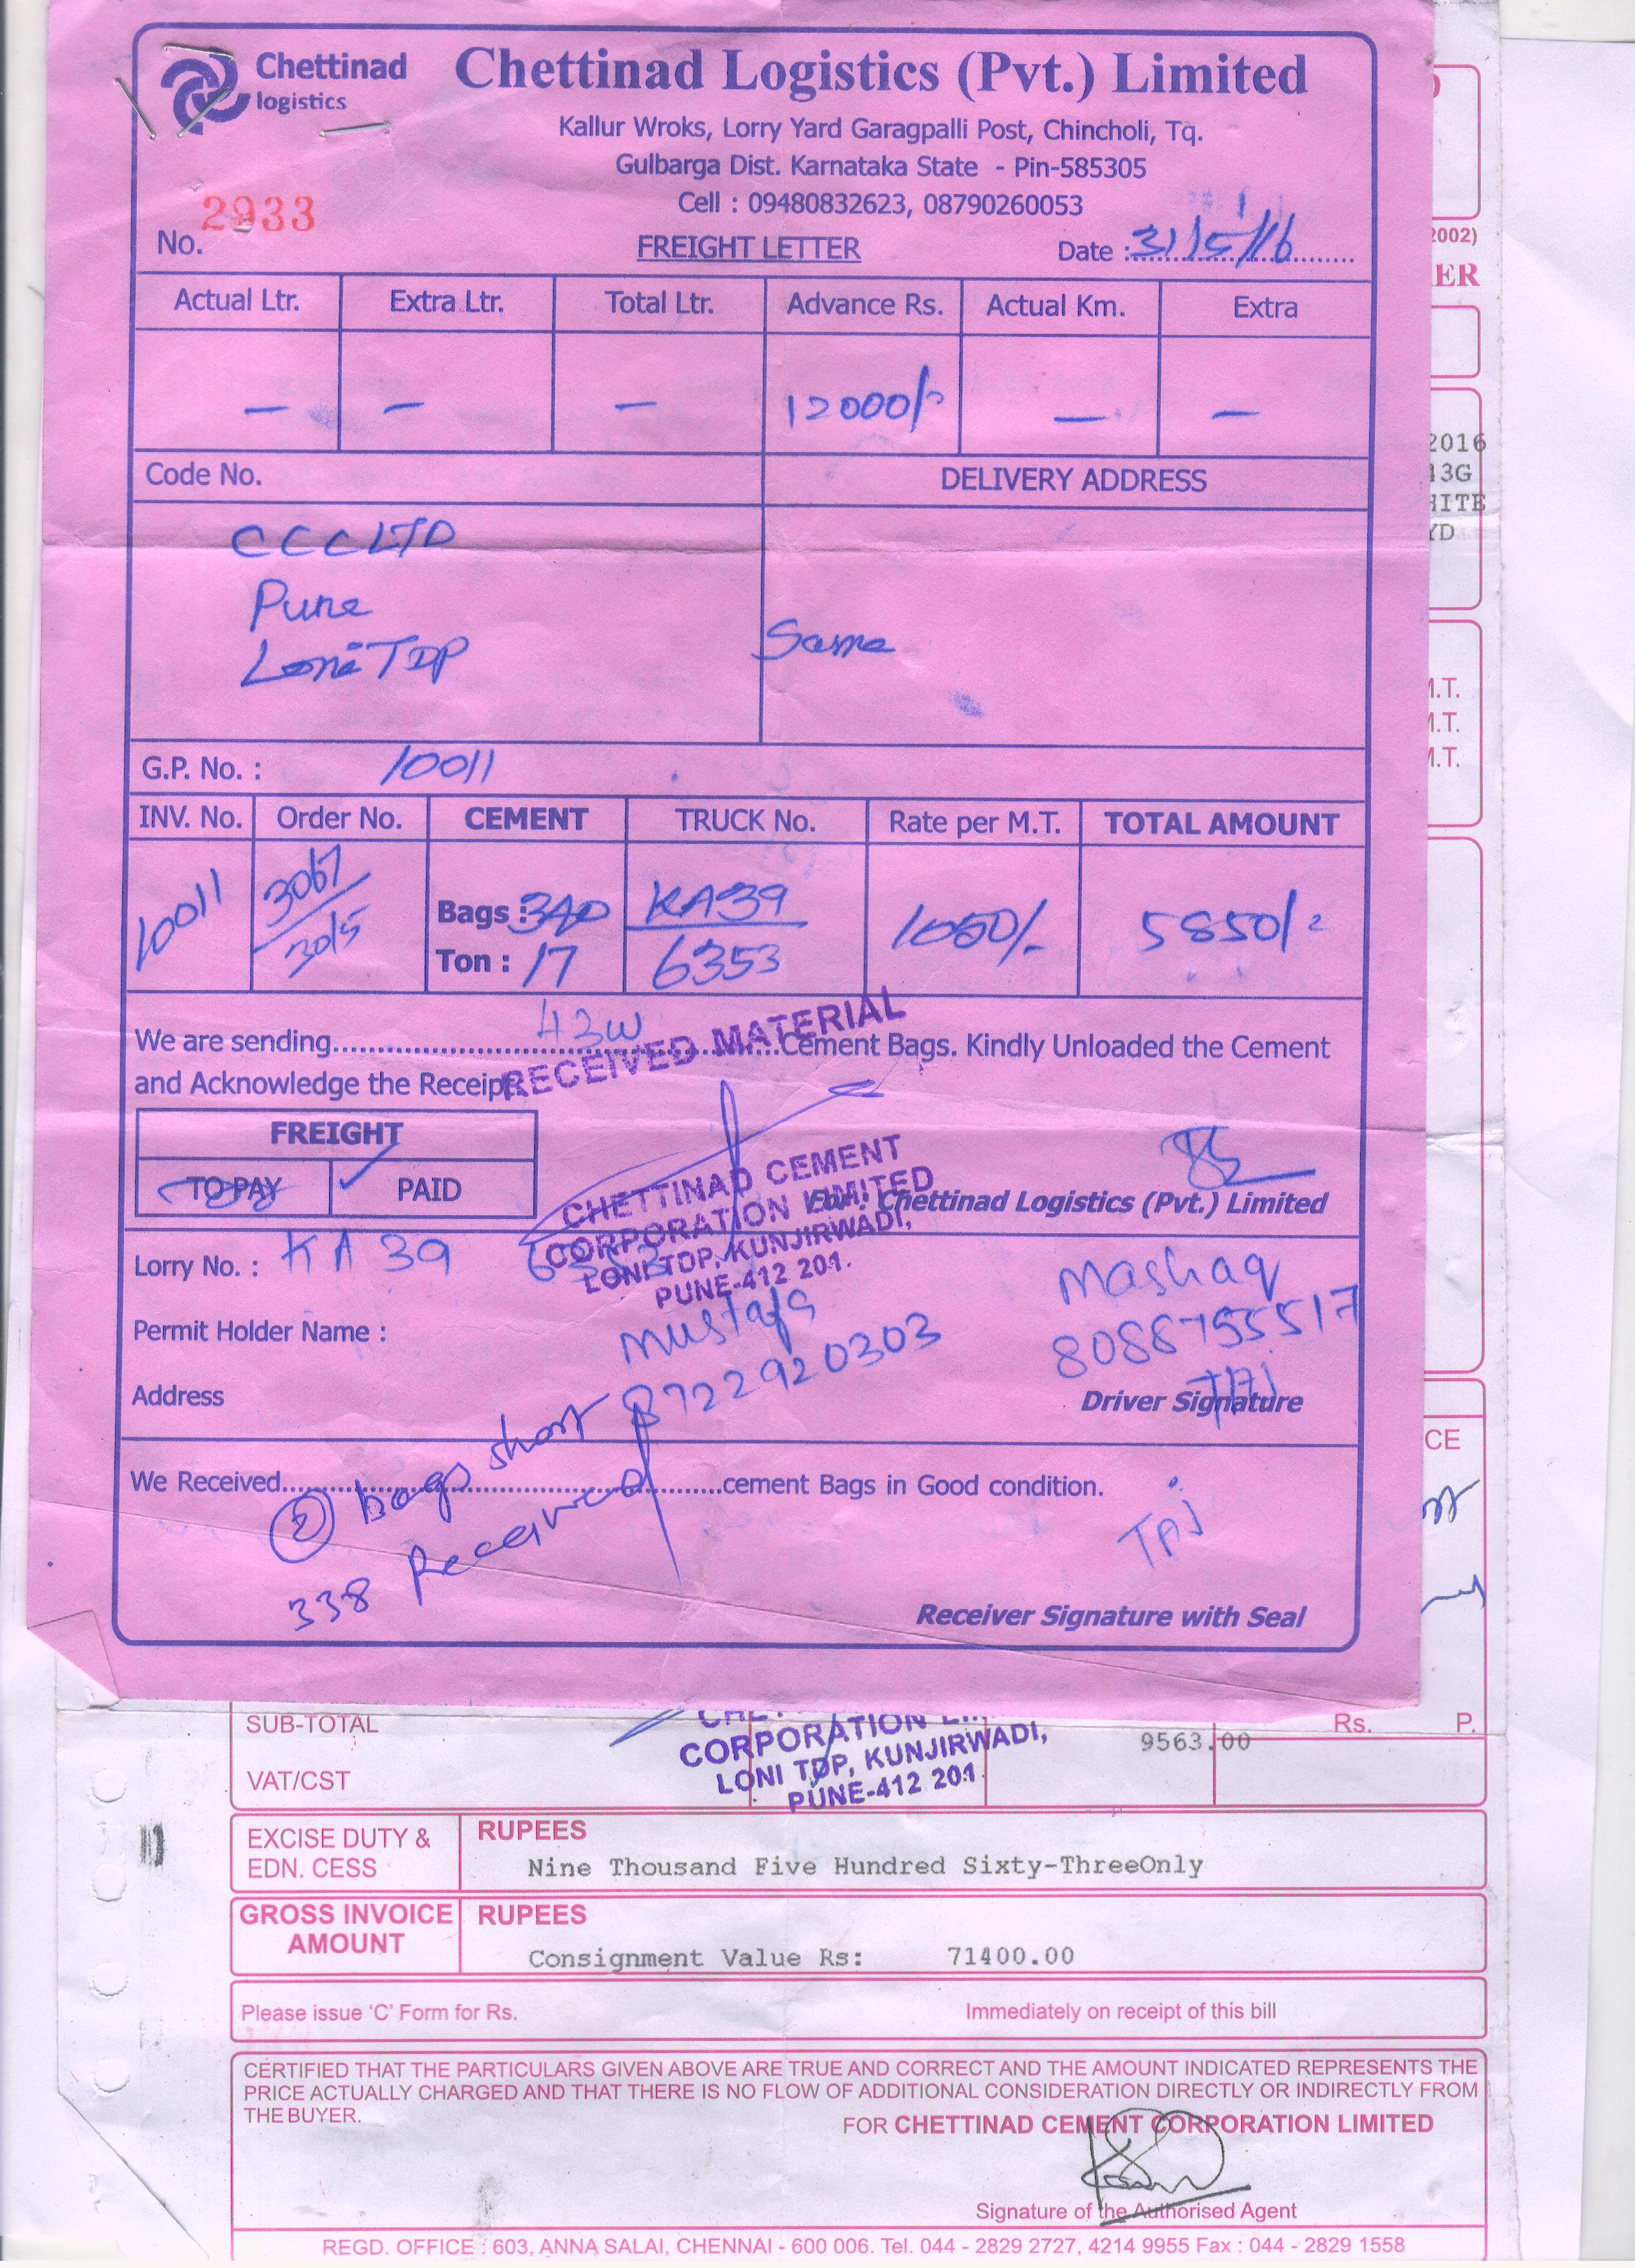 Chettinad
logistics
Chettinad Logistics (Pvt.) Limited
Kallur Wroks, Lorry Yard Garagpalli Post, Chincholi, Tq.
Gulbarga Dist. Karnataka State - Pin-585305
Cell : 09480832623, 08790260053
No. 2933
FREIGHT LETTER
Date : 31/5/16
Actual Ltr. Extra Ltr. Total Ltr. Advance Rs. Actual Km. Extra
— — — 12000/- — —
Code No. DELIVERY ADDRESS
CCCLTD
Pune
Loni TDP
Same
G.P. No. : 10011
INV. No. Order No. CEMENT TRUCK No. Rate per M.T. TOTAL AMOUNT
10011 3067 Bags : 340 KA39 1050/- 5850/-
30/5 Ton : 17 6353
43W
We are sending..........Cement Bags. Kindly Unloaded the Cement
and Acknowledge the Receipt.
RECEIVED MATERIAL
FREIGHT
TO PAY PAID
CHETTINAD CEMENT
CORPORATION LIMITED
LONI TDP, KUNJIRWADI,
PUNE-412 201.
For : Chettinad Logistics (Pvt.) Limited
Lorry No. : KA 39 6353
Mashaq
8088755517
Permit Holder Name : Mustafa
8722920303
Address
TAJ
Driver Signature
We Received..........cement Bags in Good condition.
2 bags short
338 Received
TAJ
Receiver Signature with Seal
2002)
ER
2016
13G
HITE
YD
M.T.
M.T.
M.T.
CE
SUB-TOTAL Rs. P.
9563.00
VAT/CST
CORPORATION
LONI TDP, KUNJIRWADI,
PUNE-412 201.
EXCISE DUTY &
EDN. CESS
RUPEES
Nine Thousand Five Hundred Sixty-ThreeOnly
GROSS INVOICE
AMOUNT
RUPEES
Consignment Value Rs: 71400.00
Please issue 'C' Form for Rs. Immediately on receipt of this bill
CERTIFIED THAT THE PARTICULARS GIVEN ABOVE ARE TRUE AND CORRECT AND THE AMOUNT INDICATED REPRESENTS THE
PRICE ACTUALLY CHARGED AND THAT THERE IS NO FLOW OF ADDITIONAL CONSIDERATION DIRECTLY OR INDIRECTLY FROM
THE BUYER.
FOR CHETTINAD CEMENT CORPORATION LIMITED
Signature of the Authorised Agent
REGD. OFFICE : 603, ANNA SALAI, CHENNAI - 600 006. Tel. 044 - 2829 2727, 4214 9955 Fax : 044 - 2829 1558